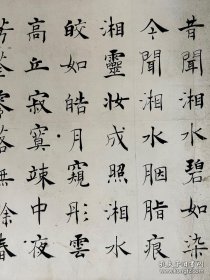 昔聞湘水碧如染
今聞湘水胭脂痕
湘靈妝成照湘水
皎如皓月窺彤雲
高丘寂寞竦中夜
芳荃零落無餘春